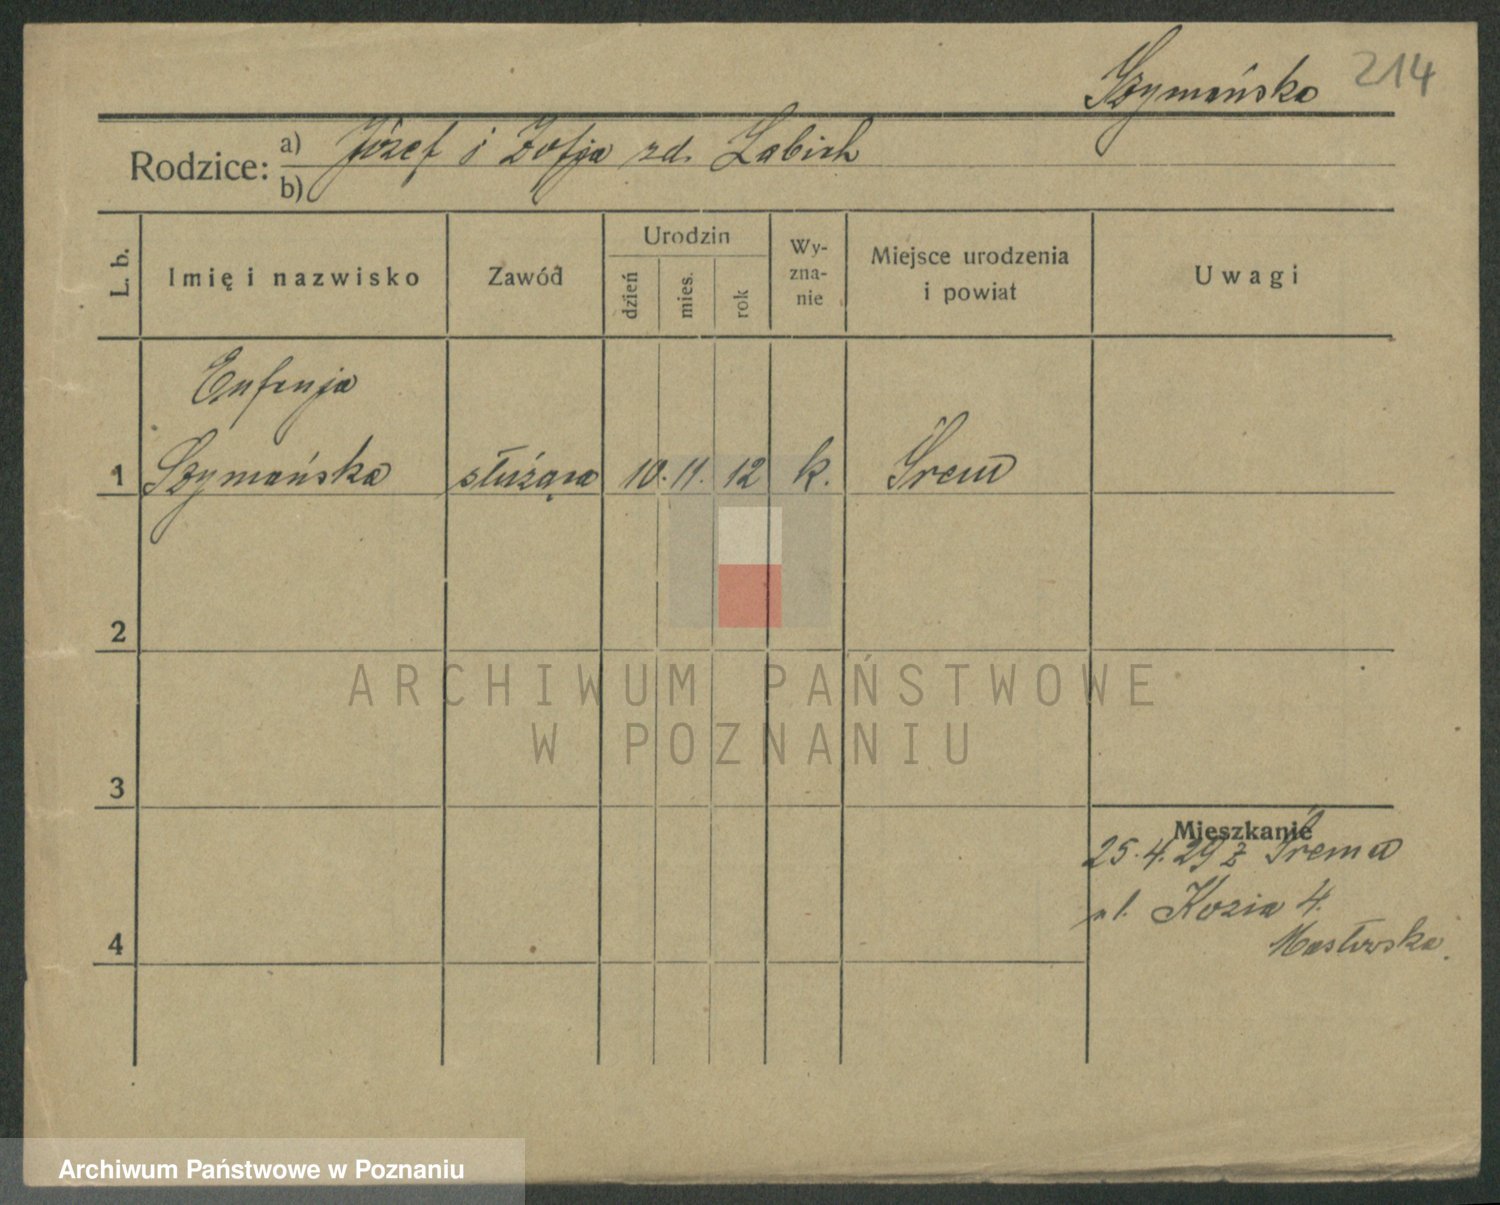 Szymańska 214
Rodzice: a) Józef i Zofja zd. Labich
b)
L. b. Imię i nazwisko Zawód Urodzin dzień mies. rok Wyzna-nie Miejsce urodzenia i powiat Uwagi
Eufenja
1 Szymańska służąca 10. 11. 12 k. Śrem
2
ARCHIWUM PAŃSTWOWE
W POZNANIU
3
Mieszkanie
25.4.29 z Śremu
ul. Kozia 4.
Masłowska
4
Archiwum Państwowe w Poznaniu